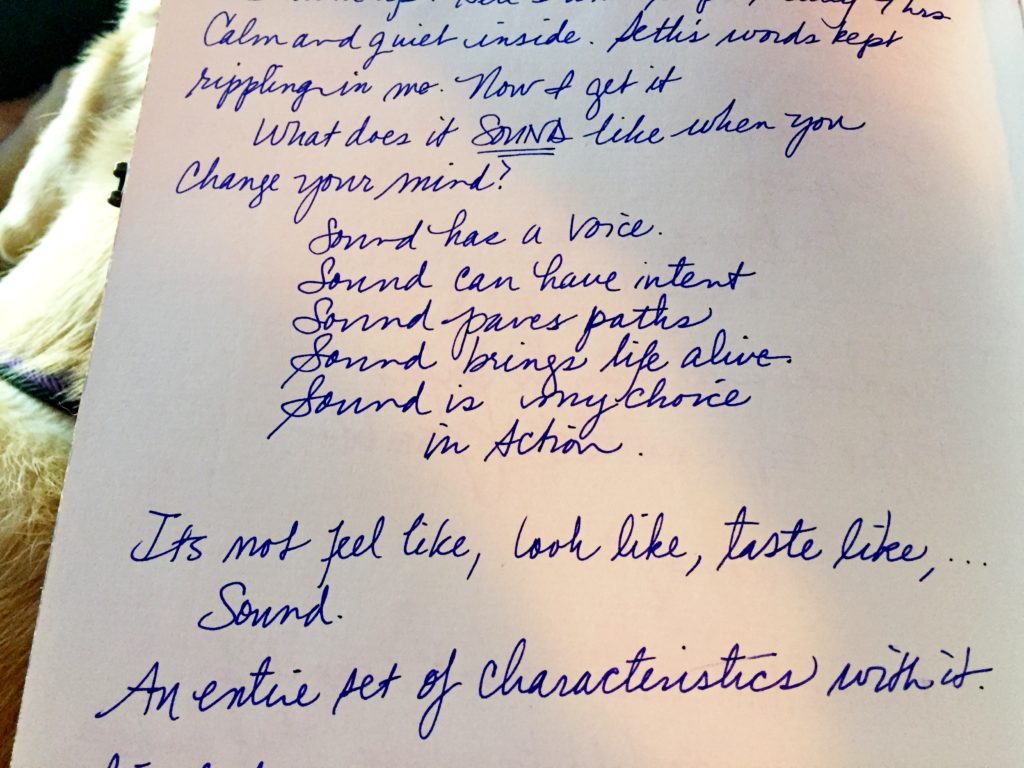 hrs
Calm and quiet inside. Seth's words kept
rippling in me. Now I get it
What does it SOUND like when you
Change your mind?
Sound has a voice.
Sound can have intent
Sound paves paths
Sound brings life alive.
Sound is my choice
in Action.
Its not feel like, look like, taste like, ...
Sound.
An entire set of characteristics with it.